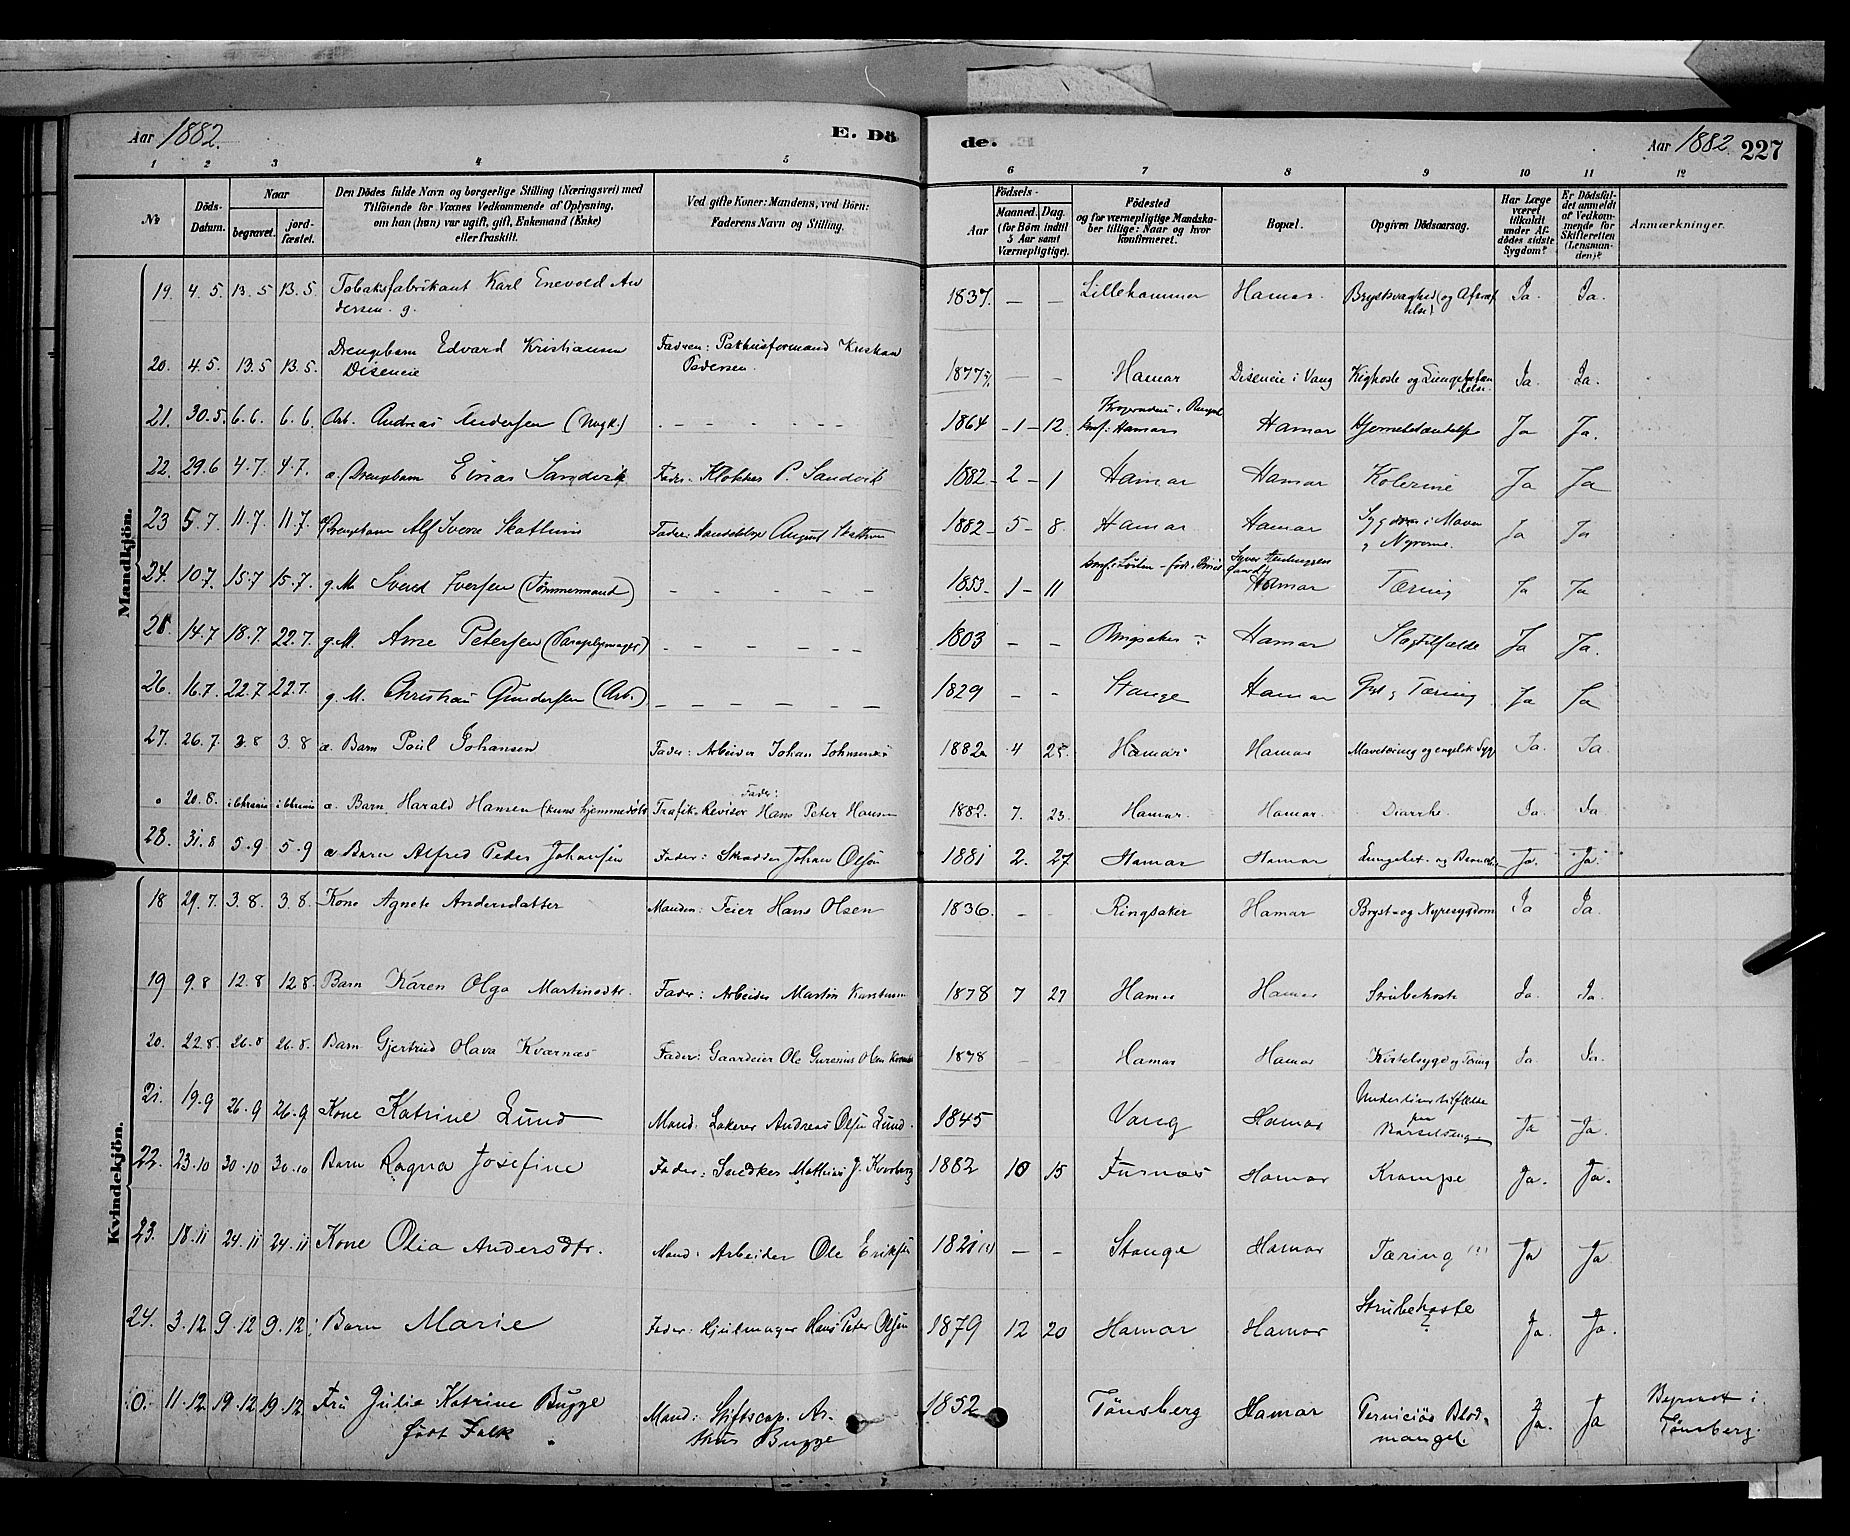 Aar 1882. E. Dö de. Aar 1882. 227
1 2 3 4 5 6 7 8 9 10 11 12
No
Döds-Datum.
Naar
begravet.
jordfæstet.
Den Dödes fulde Navn og borgerlige Stilling (Næringsvei) med
Tilföiende for Voxnes Vedkommende af Oplysning,
om han (hun) var ugift, gift, Enkemand (Enke)
eller fraskilt.
Ved gifte Koner: Mandens, ved Börn:
Faderens Navn og Stilling.
Födsels-
Aar
Maaned. Dag.
(for Börn indtil
5 Aar samt
Værnepligtige).
Födested
og for værnepligtige Mandska-
ber tillige: Naar og hvor
konfirmeret.
Bopæl.
Opgiven Dödsaarsag.
Har Læge
været
tilkaldt
under Af-
dödes sidste
Sygdom?
Er Dödsfal-
det anmeldt
af Vedkom-
mende for
Skifteretten
(Lensman-
den)?
Anmærkninger.
Mandkjön.
19. 4.5. 13.5 13.5. Tobaksfabrikant Karl Enevold An 1837. — — Lillehammer Hamar. Brystsvaghed (og Afkræf Ja. Ja.
dersen. g. telse).
20. 4.5. 13.5 13.5. Drengebarn Edvard Kristiansen Faderen: Pakhusformand Kristian 1877 — — Hamar Diseneie i Vang Kighoste og Lungebetæn Ja. Ja.
Diseneie Pedersen. delse.
21. 30.5. 6.6. 6.6. Arb. Andreas Andersen (Ungk.) — — — — — 1864 - 1 - 12. konf. Hamar Hamar Ja Ja.
22. 29.6 4.7. 4.7. æ. Drengebarn Einar Sandvik Fader: Klokker P. Sandvik 1882 - 2 - 1 Hamar Hamar Kolerine Ja Ja
23 5.7. 11.7. 11.7. Drengebarn Alf Sverre Skattum Fader: August Skattum 1882 - 5 - 8. Hamar Hamar Sygdom i Maven Ja Ja
og Nyrerne.
24. 10.7. 15.7 15.7. g. M. Sverd Iversen (Tömmermand) — — — — — 1853 - 1 - 11 konf. i Löiten - föd i Hamar Tæring Ja Ja
25 14.7 18.7. 22.7. g. M. Arne Petersen — — — — — 1803 — — Ringsaker Hamar Slagtilfælde Ja Ja.
26. 16.7. 22.7 22.7. g. M. Christian Gundersen (Arb.) — — — — — 1829 — — Stange Hamar Tæring Ja Ja
27. 26.7. 3.8 3.8 æ. Barn Poul Johansen Fader: Arbeider Johan Johannesen 1882 4 25. Hamar Hamar Mavetæring og engelsk Syge Ja. Ja
Fader:
" 20.8. i Chrania i Chrania æ. Barn Harald Hansen (kuns hjemmedöbt) Trafik-Revisor Hans Peter Hansen 1882. 7. 23. Hamar. Hamar. Diarrhe. Ja. Ja
28. 31.8 5.9 5.9 æ Barn Alfred Peder Johansen Fader: Skrædder Johan Olsen 1881 2. 27 Hamar Hamar Ja. Ja.
Kvindekjön.
18 29.7. 3.8. 3.8. Kone Agnete Andersdatter Manden: Feier Hans Olsen 1836. - - Ringsaker Hamar Bryst- og Nyresygdom Ja Ja.
19 9.8 12.8 12.8. Barn Karen Olga Martinsdtr. Fader: Arbeider Martin 1878 7 27 Hamar Hamar Strubehoste Ja. Ja.
20. 22.8. 26.8 26.8. Barn Gjertrud Olava Kværnæs Fader: Gaardeier Ole 1878 - - Hamar Hamar Kirtelsyge og Tæring Ja. Ja.
21. 19.9 26.9 26.9 Kone Katrine Lund Mand: Lakerer Andreas Olsen Lund. 1845 Vang Hamar Barselseng Ja Ja.
22. 23.10 30.10 30.10 Barn Ragna Josefine Fader: Snedker Mathias J. 1882 10 15 Furnæs Hamar Krampe Ja. Ja.
23. 18.11 24.11 24.11 Kone Olia Andersdtr. Mand: Arbeider Ole Eriksen 1821 (?) — — Stange Hamar Tæring (?) Ja Ja.
24. 3.12. 9.12 9.12. Barn Marie Fader: Hjulmager Hans Peter Olsen 1879 12 20 Hamar Hamar Strubehoste ? Ja. Ja.
0. 11.12. 19.12 19.12. Fru Julie Katrine Bugge Mand: Stiftscap. Ar- 1852 Tönsberg Hamar Perniciös Blod- Ja. Ja Begravet i
födt Falk thur Bugge mangel. Tönsberg.